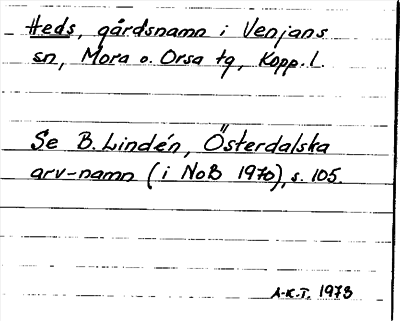 Heds, gårdsnamn i Venjans
sn, Mora o. Orsa tg, Kopp. l.
Se B. Lindén, Österdalska
arv-namn (i NoB 1970), s. 105.
A-K.T. 1973